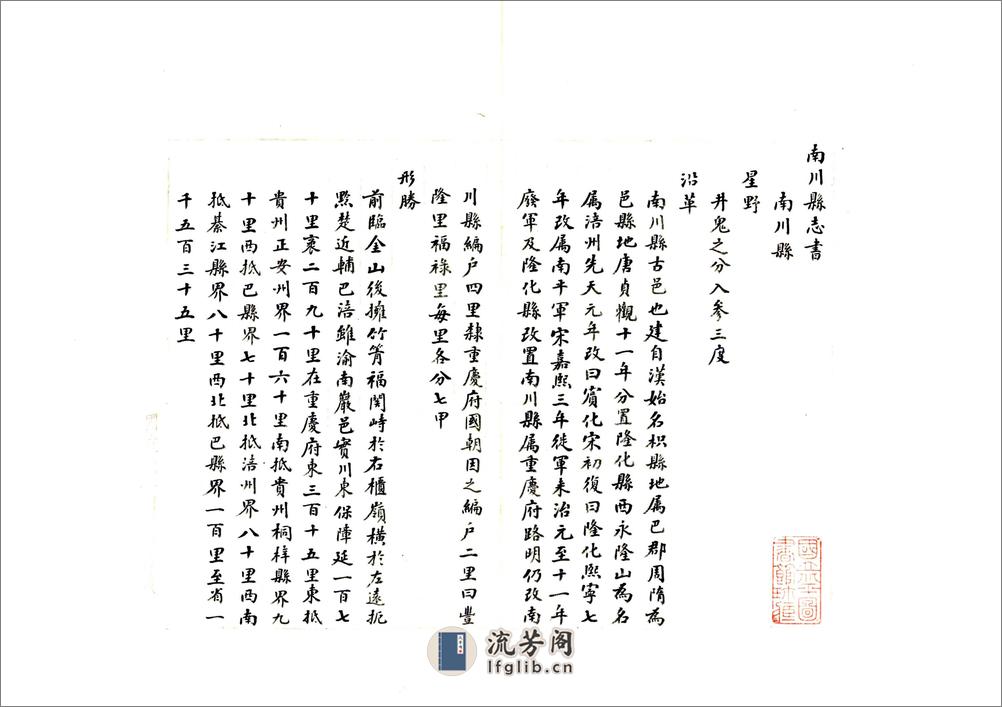 南川縣志書
南川縣
星野
井鬼之分入參三度
沿革
南川縣古邑也建自漢始名枳縣地属巴郡周隋為
邑縣地唐貞觀十一年分置隆化縣西永隆山為名
属涪州先天元年改曰賓化宋初復曰隆化熙寧七
年改属南平軍宋嘉熙三年徙軍来治元至十一年
廢軍及隆化縣改置南川縣属重慶府路明仍改南
川縣編户四里隸重慶府國朝因之編户二里曰豐
隆里福祿里每里各分七甲
形勝
前臨金山後擁竹箐福関峙於右櫃嶺横於左遠扼
黔楚近輔巴涪雖渝南巖邑實川東保障延一百七
十里袤二百九十里在重慶府東三百十五里東抵
貴州正安州界一百六十里南抵貴州桐梓縣界九
十里西抵巴縣界七十里北抵涪州界八十里西南
抵綦江縣界八十里西北抵巴縣界一百里至省一
千五百三十五里
國立北平圖
書館珍藏
流芳阁
lfglib.cn